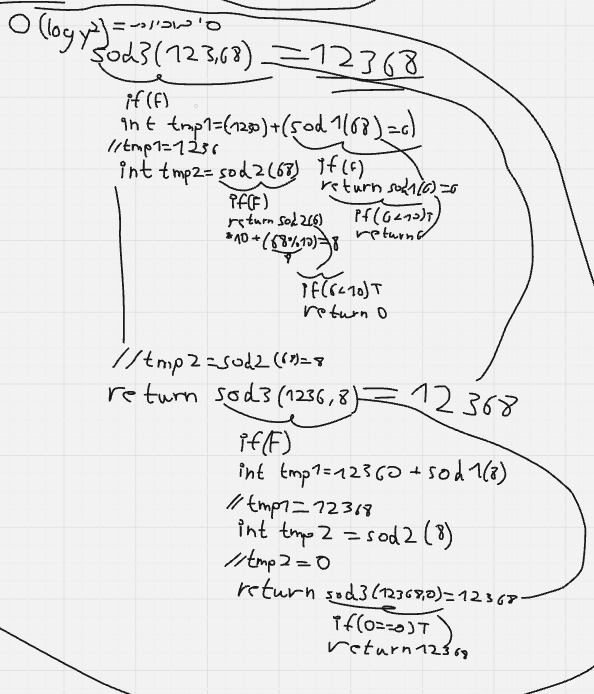 O(log y²)=סיבוכיות
sod3(123,68) = 12368
if(F)
int tmp1=(1230)+(sod1(68)=6)
//tmp1=1236
int tmp2=sod2(68)
if(F)
return sod2(6)
*10+(68%10)=8
8
if(6<10)T
return 0
return sod1(6)=6
if(6<10)T
return 6
//tmp2=sod2(68)=8
return sod3(1236,8)=12368
if(F)
int tmp1=12360+sod1(8)
//tmp1=12368
int tmp2=sod2(8)
//tmp2=0
return sod3(12368,0)=12368
if(0==0)T
return 12368